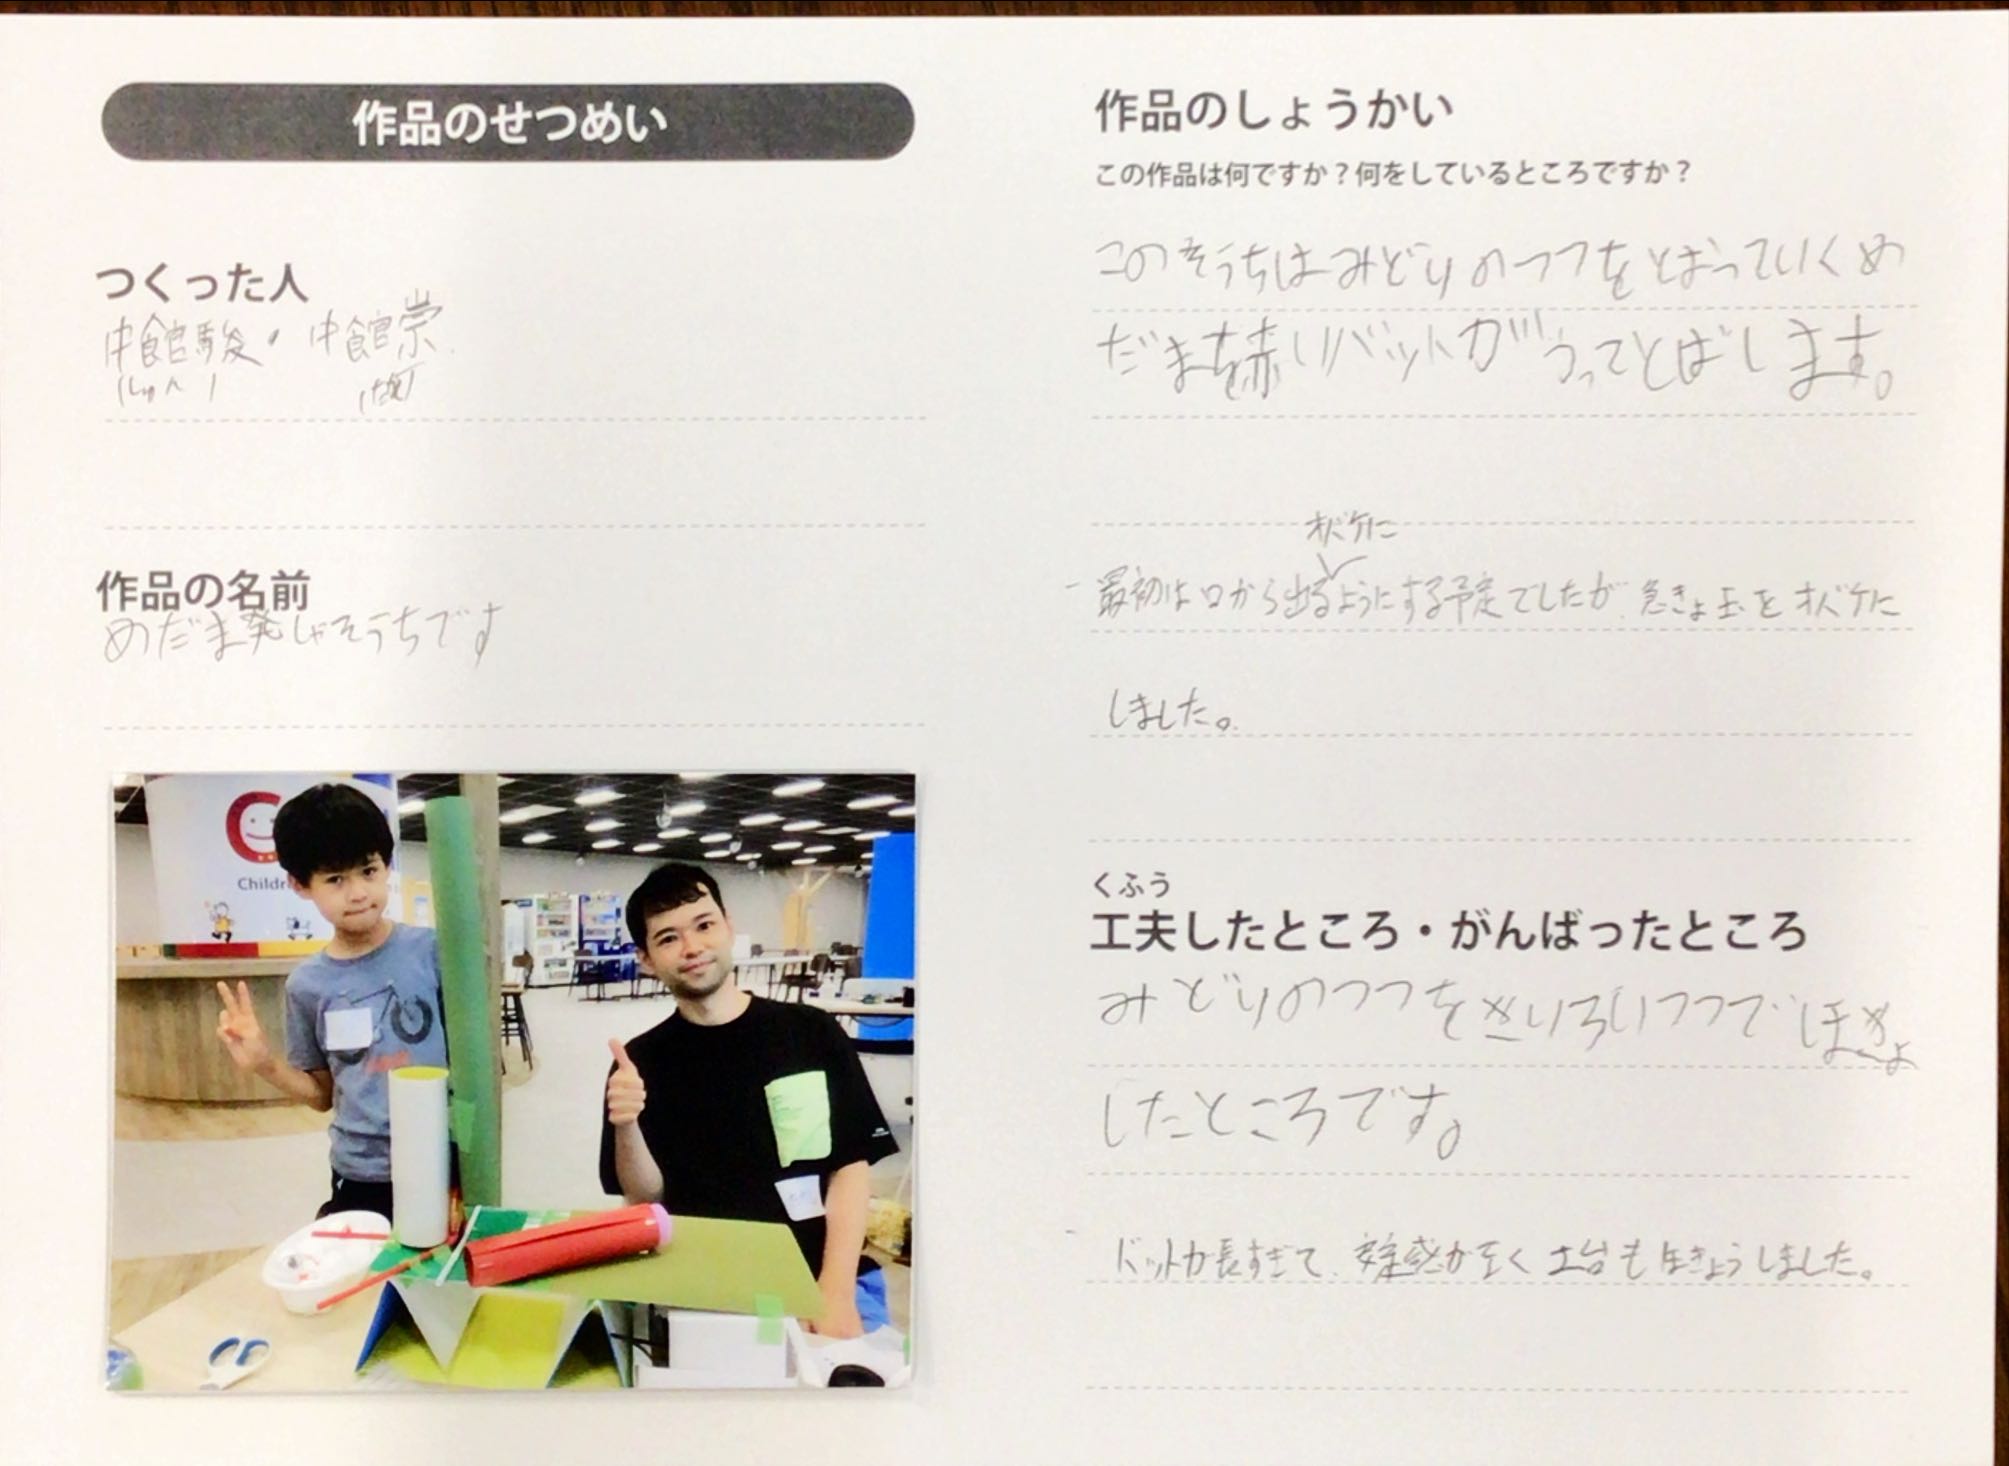 作品のせつめい
つくった人
中館駿・中館崇
しゅん
作品の名前
めだま発しゃそうちです
Childr
作品のしょうかい
この作品は何ですか？何をしているところですか？
このそうちはみどりのつつをとばっていくめ
だまを赤いバットがうってとばします。
オバケに
最初は口から出るようにする予定でしたが、急きょ玉をオバケに
しました。
くふう
工夫したところ・がんばったところ
みどりのつつをきいろいつつでほきょ
したところです。
バットが長すぎて、安定感がなく土台もほきょうしました。